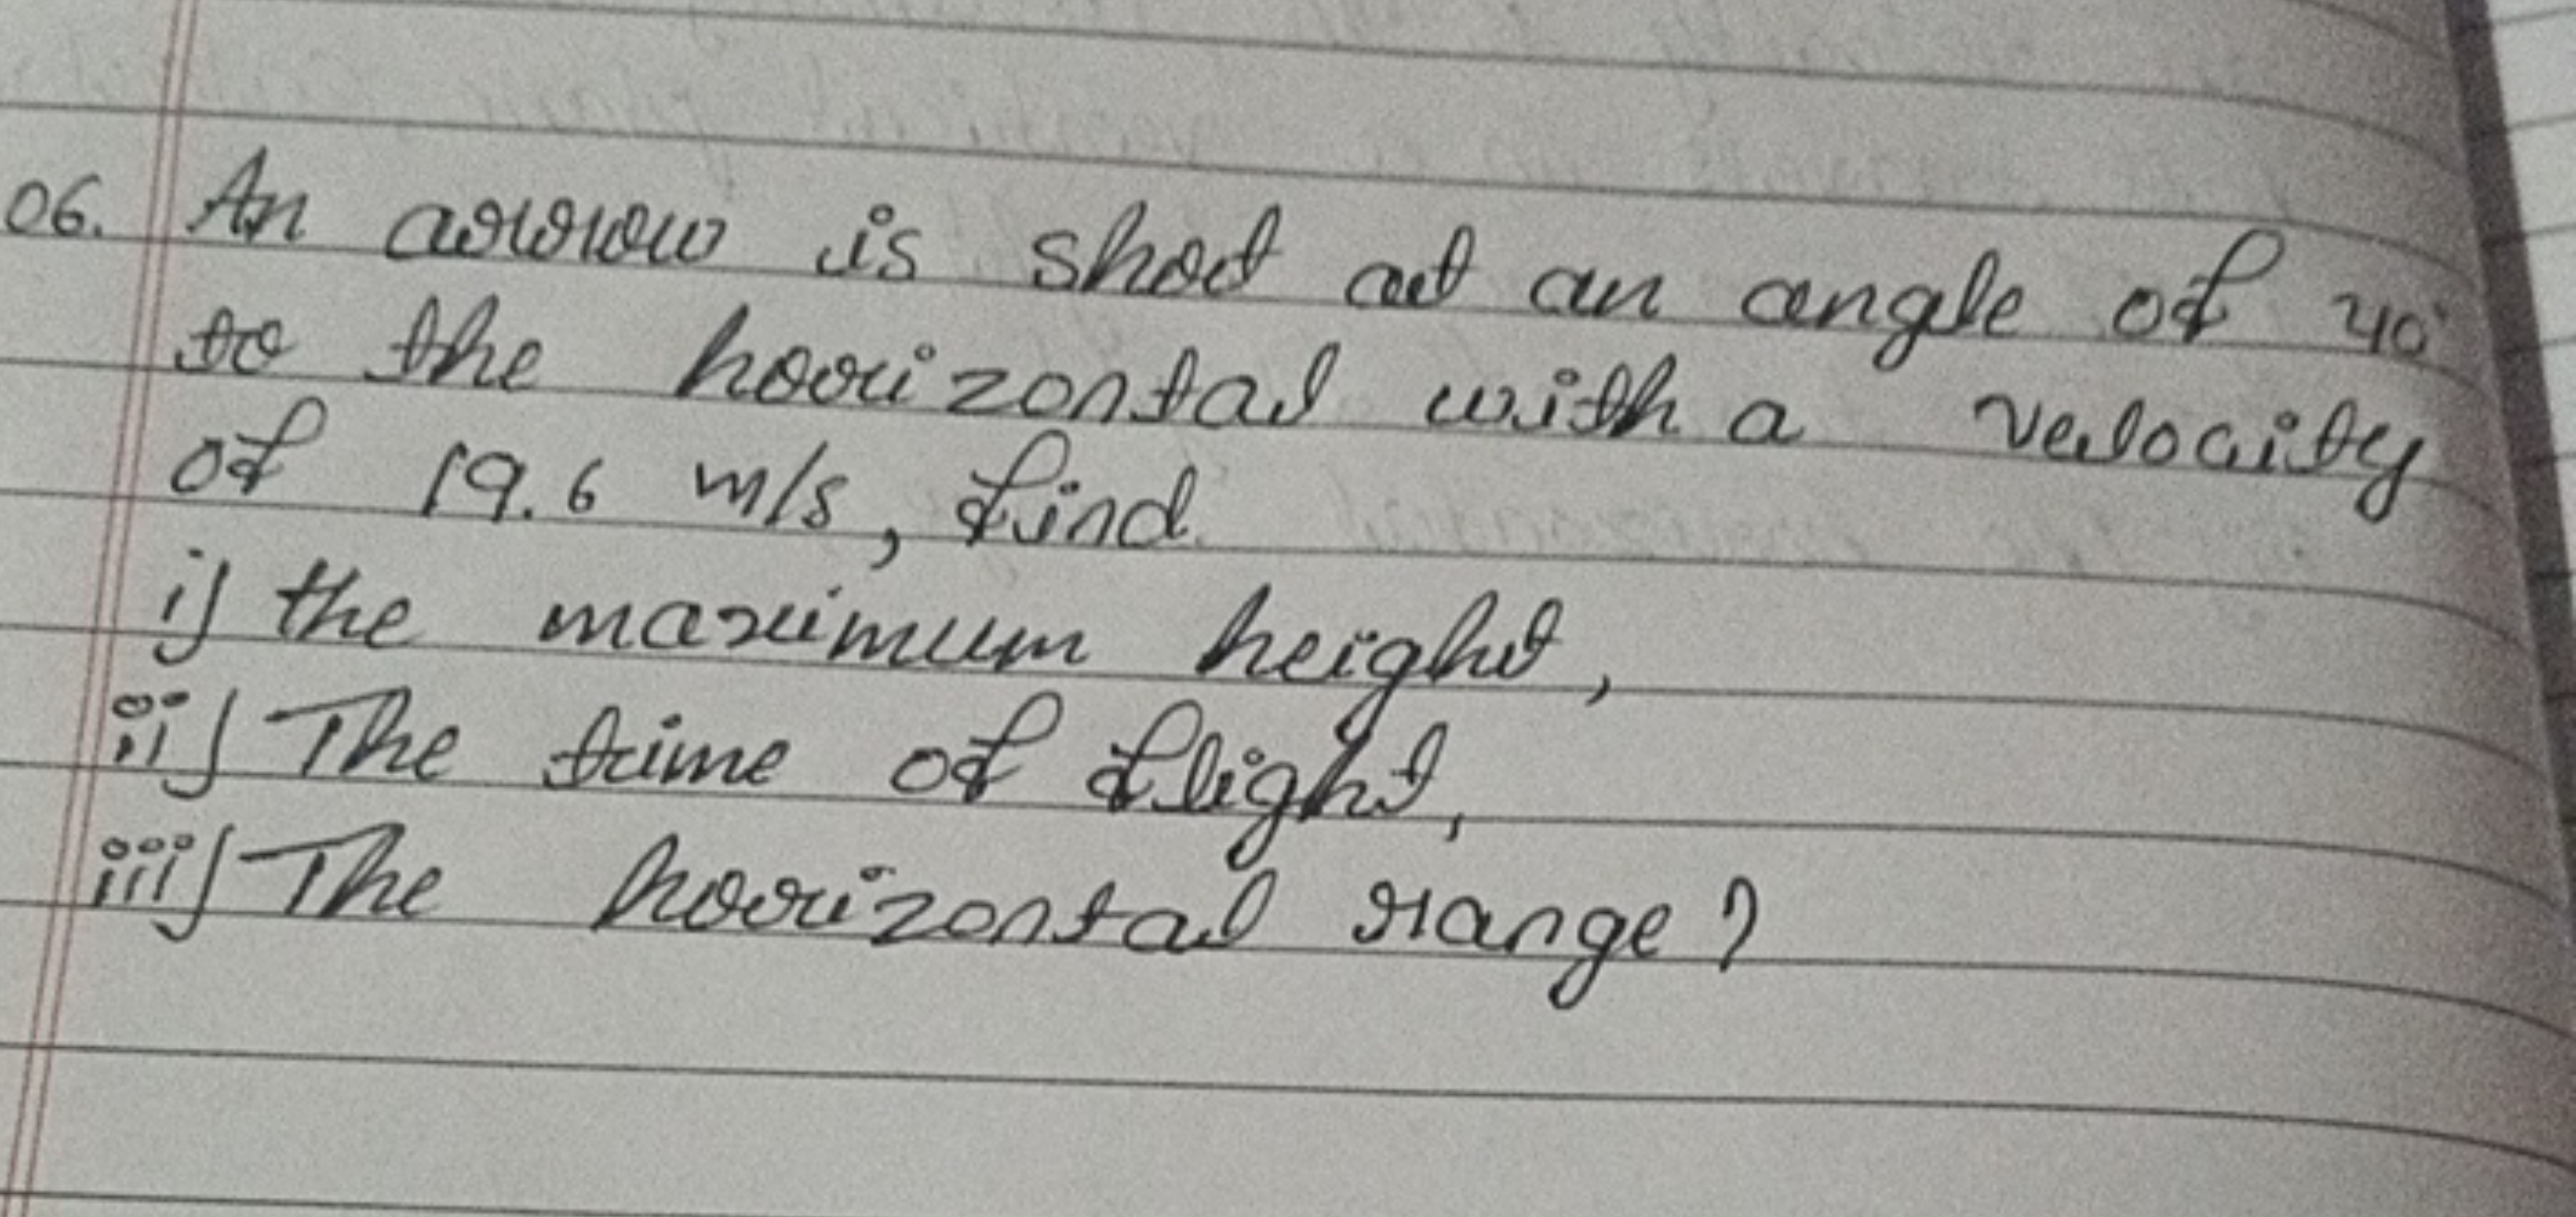 06. An arrow is shot at an angle of 40°
to the horizontal with a velocity
of 19.6 m/s, find
i) the maximum height,
ii) The time of flight,
iii) The horizontal range?